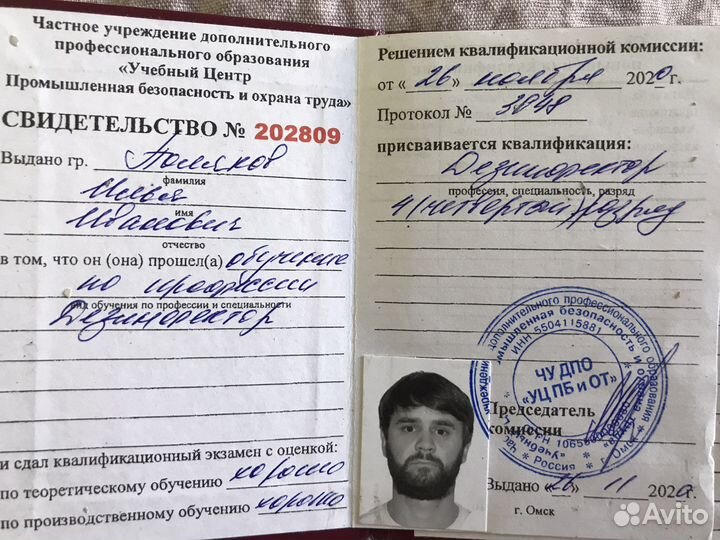 Частное учреждение дополнительного
профессионального образования
«Учебный Центр
Промышленная безопасность и охрана труда»
СВИДЕТЕЛЬСТВО № 202809
Выдано гр. Поляков
фамилия
Илья
имя
Иванович
отчество
в том, что он (она) прошел(а) обучение
по профессии
вид обучения по профессии и специальности
Дезинфектор
и сдал квалификационный экзамен с оценкой:
по теоретическому обучению хорошо
по производственному обучению хорошо
Решением квалификационной комиссии:
от « 26 » ноября 2020 г.
Протокол № 3848
присваивается квалификация:
Дезинфектор
профессия, специальность, разряд
4 (четвертый) разряд
дополнительного профессионального образования
ИНН 5504115881
ЧУ ДПО
«УЦ ПБ и ОТ»
Россия * г. Омск
Председатель
комиссии
Выдано « 26 » 11 2020 г.
г. Омск
Avito